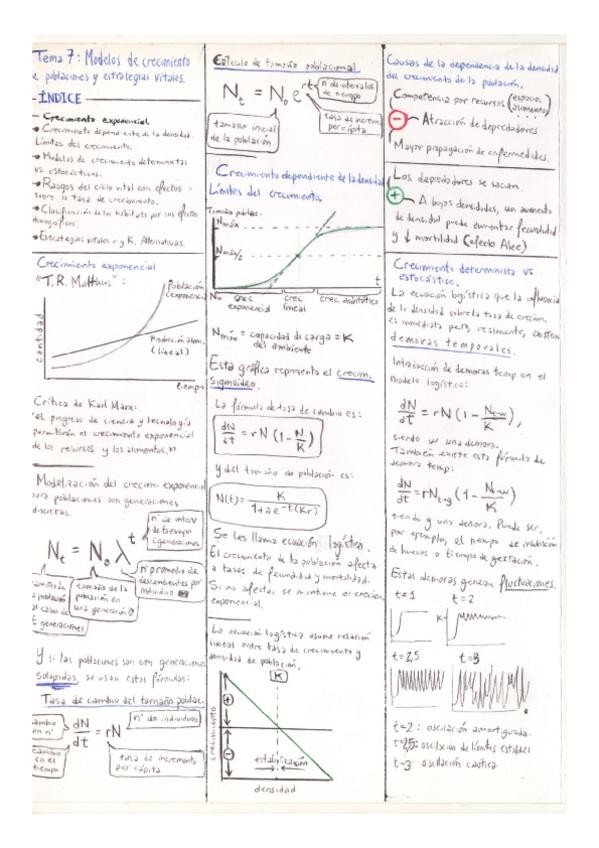 Tema 7: Modelos de crecimiento
de poblaciones y estrategias vitales.
ÍNDICE
- Crecimiento exponencial.
• Crecimiento dependiente de la densidad.
Límites del crecimiento.
• Modelos de crecimiento determinista
vs estocásticos.
• Rasgos del ciclo vital con efectos
sobre la tasa de crecimiento.
• Clasificación de los hábitats por sus efectos
demográficos.
• Estrategias vitales r y K. Alternativas.
Crecimiento exponencial
"T.R. Malthus":
Población
(exponencial
Producción alim.
(lineal)
cantidad
tiempo
Crítica de Karl Marx:
"el progreso de ciencia y tecnología
permitirán el crecimiento exponencial
de los recursos y los alimentos."
Modelización del crecim. exponencial
para poblaciones con generaciones
discretas.
nº de interv
de tiempo
(generaciones)
Nt = N₀ λ^t
tamaño de la
población en
una generación 0
nº promedio de
descendientes por
individuo
población
al cabo de
t generaciones
Y si las poblaciones son con generaciones
solapadas, se usan estas fórmulas:
Tasa de cambio del tamaño poblac.
cambio
en nº
dN/dt = rN
nº de individuos
cambio
en el
tiempo
tasa de incremento
per cápita
Cálculo de tamaño poblacional
Nt = N₀ e^rt
nº de intervalos
de tiempo
tamaño inicial
de la población
tasa de increm
per cápita
Crecimiento dependiente de la densidad
Límites del crecimiento.
Tamaño poblac.
Nmáx
Nmáx/2
t
N₀ crec. exponencial
crec. lineal
crec. asintótico
Nmáx = capacidad de carga = K
del ambiente
Esta gráfica representa el crecim.
sigmoideo.
La fórmula de tasa de cambio es:
dN/dt = rN (1 - N/K)
y del tamaño de población es:
N(t) = K / (1+ae^-t(Kr))
Se les llama ecuación logística.
El crecimiento de la población afecta
a tasas de fecundidad y mortalidad.
Si no afectar, se mantiene el crecim
exponencial.
La ecuación logística asume relación
lineal entre tasa de crecimiento y
densidad de población.
K
+
-
crecimiento
estabilización
densidad
Causas de la dependencia de la densidad
del crecimiento de la población.
Competencia por recursos (espacio,
alimento)
- Atracción de depredadores
Mayor propagación de enfermedades.
Los depredadores se sacian.
+ A bajas densidades, un aumento
de densidad puede aumentar fecundidad
y ↓ mortilidad (efecto Alee)
Crecimiento determinista vs.
estocástico.
La ecuación logística que la influencia
de la densidad sobre la tasa de crecim.
es inmediata pero, realmente, existen
demoras temporales.
Introducción de demoras temp en el
modelo logístico:
dN/dt = rN (1 - Nt-w/K),
siendo w una demora.
También existe esta fórmula de
demora temp:
dN/dt = rNt-g (1 - Nt-w/K)
siendo g una demora. Puede ser,
por ejemplo, el tiempo de incubación
de huevos o tiempo de gestación.
Estas demoras generan fluctuaciones.
t=1 t=2
K
t=2,5 t=3
t=2: oscilación amortiguada.
t=2,5: oscilación de límites estables
t=3: oscilación caótica.